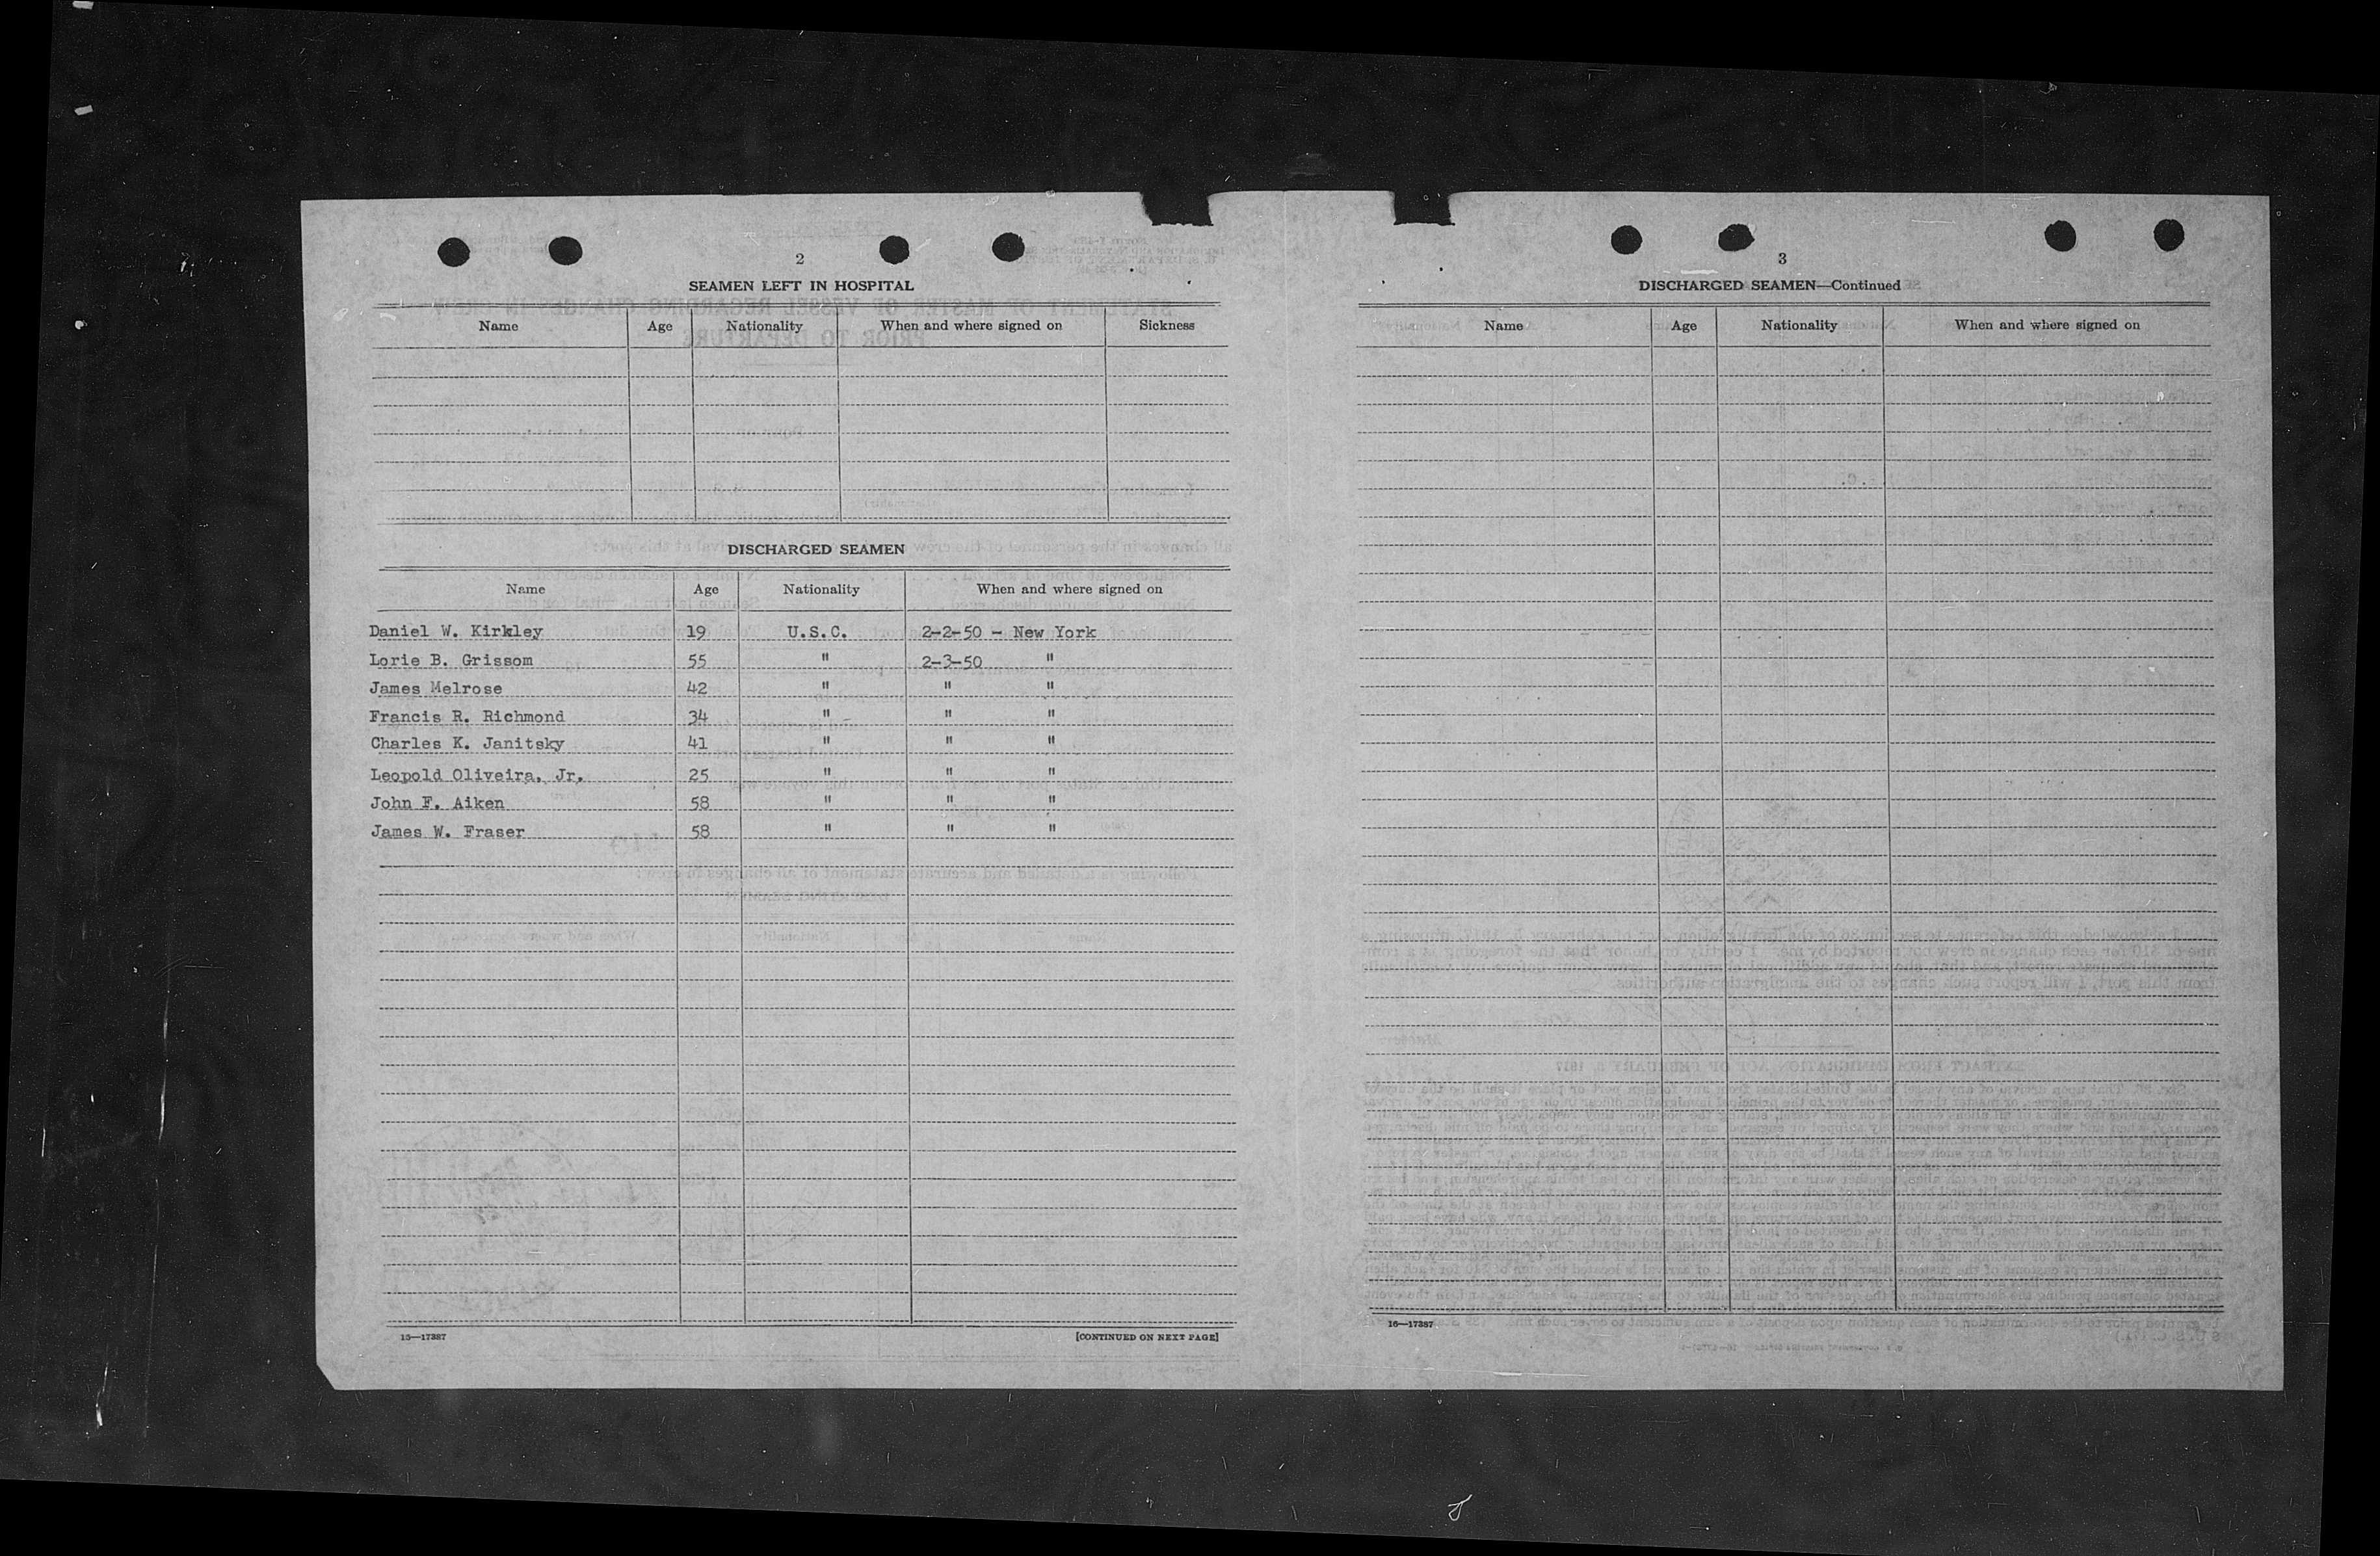 2
SEAMEN LEFT IN HOSPITAL
Name Age Nationality When and where signed on Sickness
DISCHARGED SEAMEN
Name Age Nationality When and where signed on
Daniel W. Kirkley 19 U.S.C. 2-2-50 - New York
Lorie B. Grissom 55 " 2-3-50 "
James Melrose 42 " " "
Francis R. Richmond 34 " " "
Charles K. Janitsky 41 " " "
Leopold Oliveira, Jr. 25 " " "
John F. Aiken 58 " " "
James W. Fraser 58 " " "
16—17387 [CONTINUED ON NEXT PAGE]
3
DISCHARGED SEAMEN—Continued
Name Age Nationality When and where signed on
16—17387